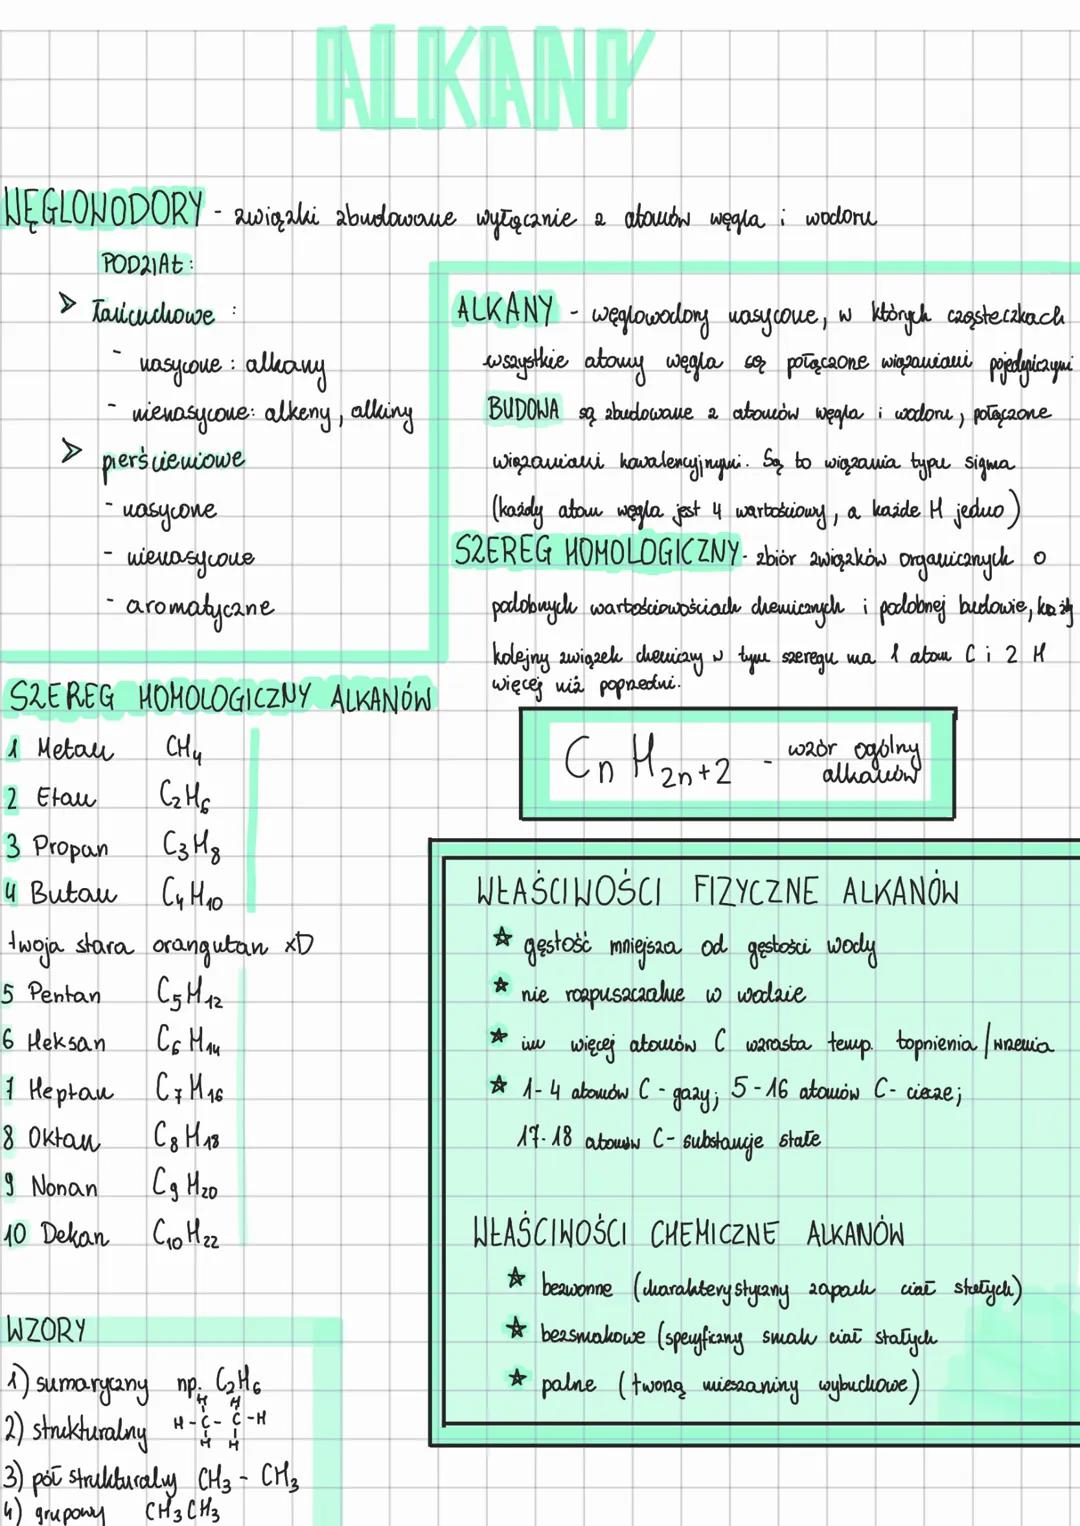 ALKANY
WĘGLOWODORY - związki zbudowane wyłącznie z atomów węgla i wodoru
PODZIAŁ:
> Łańcuchowe :
- nasycone : alkany
- nienasycone: alkeny, alkiny
> pierścieniowe
- nasycone
- nienasycone
- aromatyczne
ALKANY - węglowodory nasycone, w których cząsteczkach
wszystkie atomy węgla są połączone wiązaniami pojedynczymi
BUDOWA są zbudowane z atomów węgla i wodoru, połączone
wiązaniami kowalencyjnymi. Są to wiązania typu sigma
(każdy atom węgla jest 4 wartościowy, a każde H jedno)
SZEREG HOMOLOGICZNY- zbiór związków organicznych o
podobnych wartościowościach chemicznych i podobnej budowie, każdy
kolejny związek chemiczny w tym szeregu ma 1 atom C i 2 H
więcej niż poprzedni.
CnH2n+2 - wzór ogólny
alkanów
SZEREG HOMOLOGICZNY ALKANÓW
1 Metan CH4
2 Etan C2H6
3 Propan C3H8
4 Butan C4H10
twoja stara orangutan xD
5 Pentan C5H12
6 Heksan C6H14
7 Heptan C7H16
8 Oktan C8H18
9 Nonan C9H20
10 Dekan C10H22
WŁAŚCIWOŚCI FIZYCZNE ALKANÓW
☆ gęstość mniejsza od gęstości wody
☆ nie rozpuszczalne w wodzie
☆ im więcej atomów C wzrasta temp. topnienia / wrzenia
☆ 1-4 atomów C - gazy; 5-16 atomów C- ciecze;
17-18 atomów C- substancje stałe
WŁAŚCIWOŚCI CHEMICZNE ALKANÓW
☆ bezwonne (charakterystyczny zapach ciał stałych)
☆ bezsmakowe (specyficzny smak ciał stałych
☆ palne (tworzą mieszaniny wybuchowe)
WZORY
1) sumaryczny np. C2H6
H H
2) strukturalny H-C-C-H
H H
3) pół strukturalny CH3 - CH3
4) grupowy CH3CH3